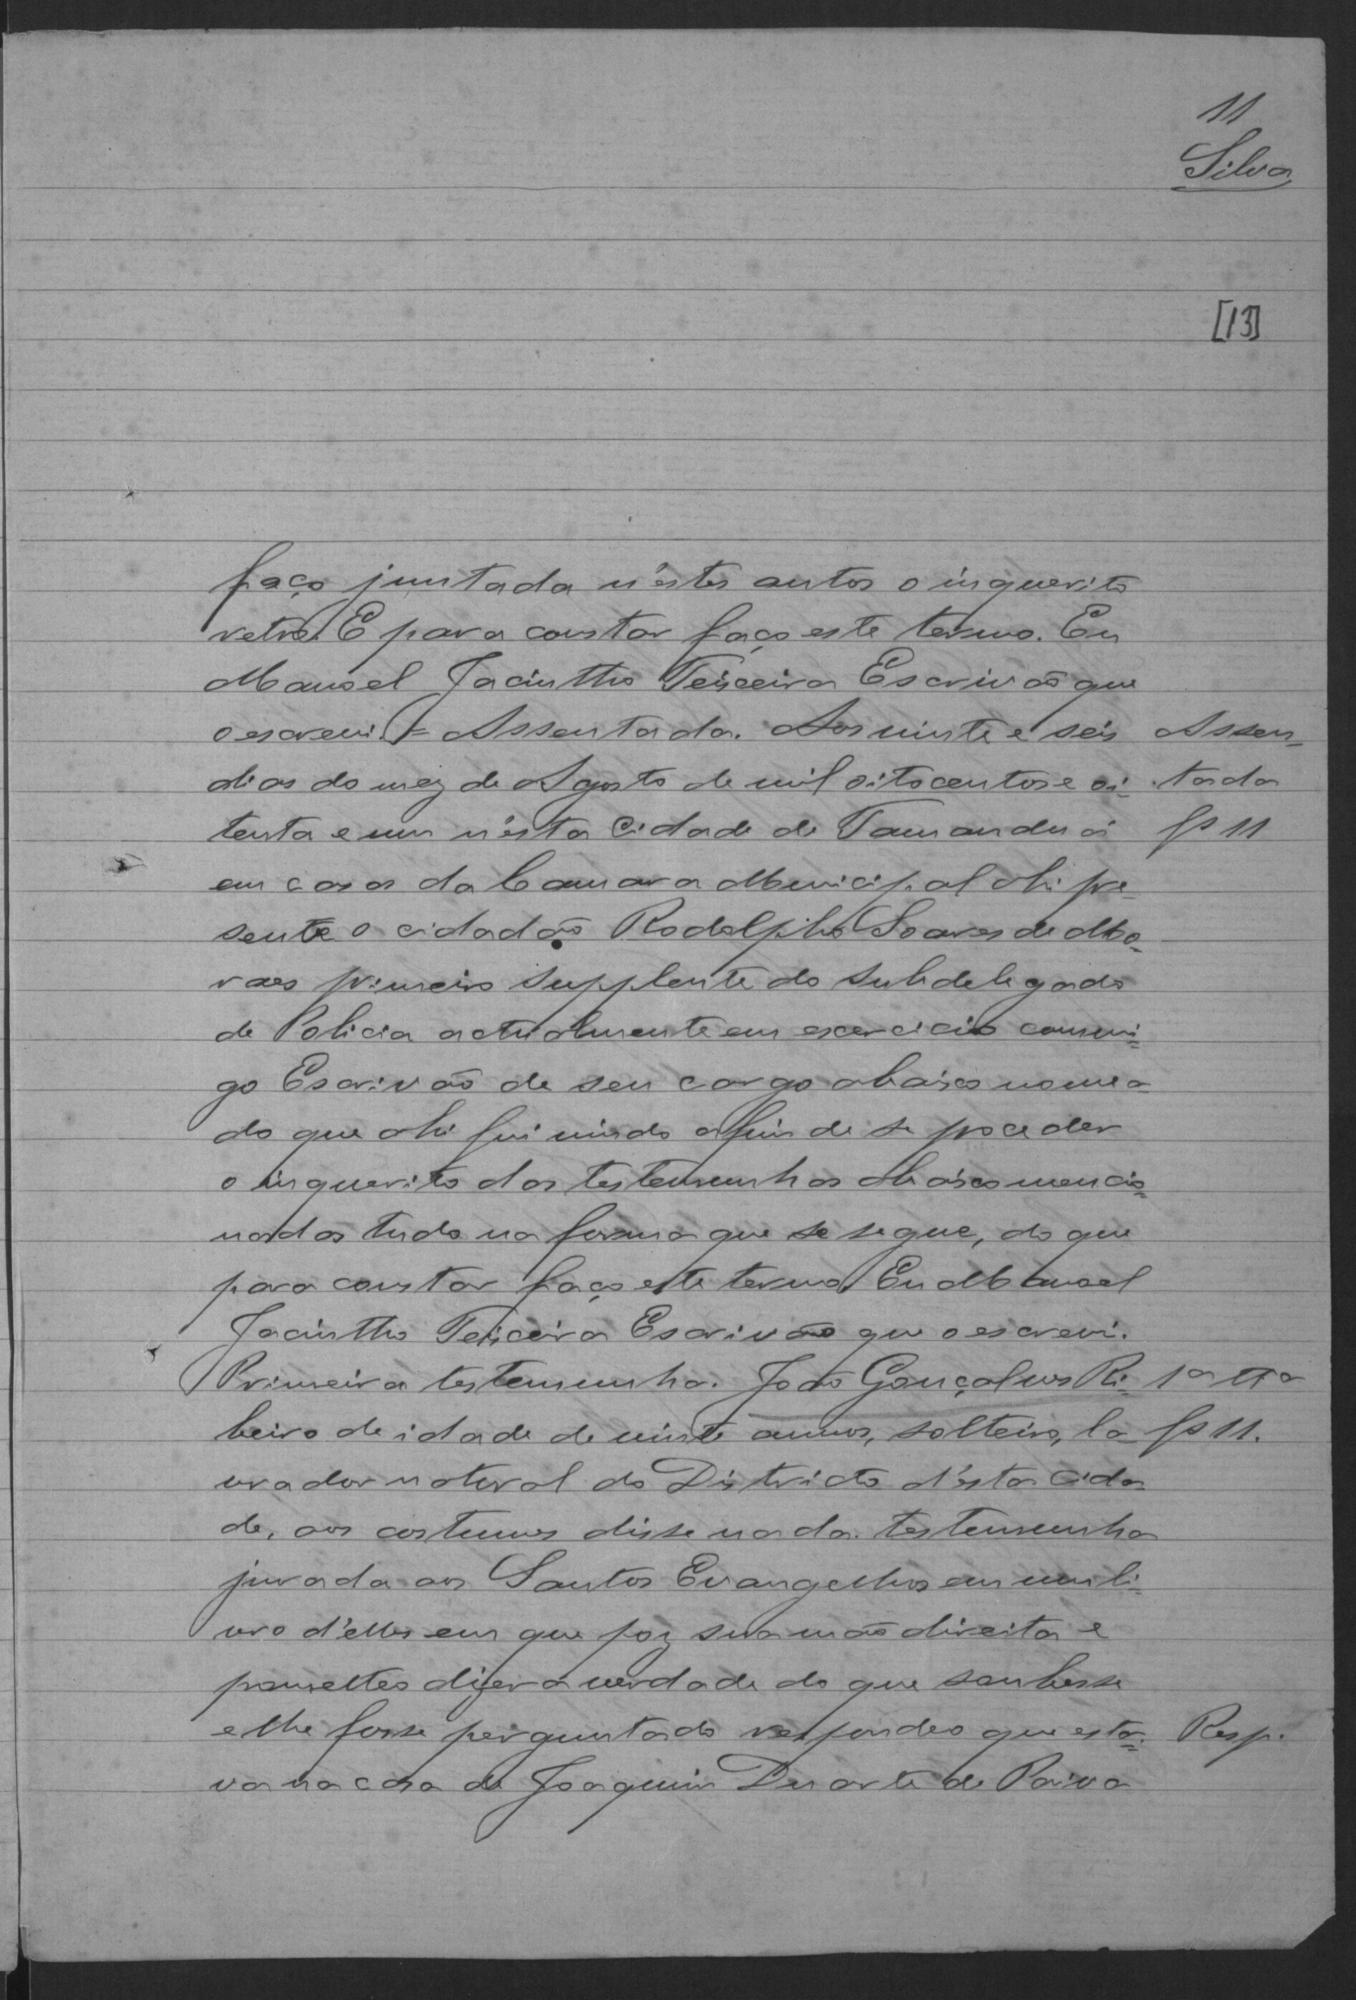 11
Silva
[13]
faço juntada n'éstes autos o inquerito
retro. E para constar faço este termo. Eu
Manoel Jacintho Teixeira Escrivão que
o escrevi. = Assentada. Aos vinte e seis Assen-
dias do mez de Agosto de mil oitocentos e oi- tada
tenta e um n'ésta Cidade de Tamanduá fs 11
em casa da Camara Municipal ahi pre-
sente o cidadão Rodolpho Soares de Mo-
raes primeiro supplente do subdelegado
de Policia actualmente em exercicio commi-
go Escrivão de seu cargo abaixo nomea-
do que ahi fui vindo afim de se proceder
o inquerito das testemunhas abaixo mencio-
nadas tudo na forma que se segue, do que
para constar faço este termo Eu Manoel
Jacintho Teixeira Escrivão que o escrevi.
Primeira testemunha. João Gonçalves Ri- 1ª Tª
beiro de idade de vinte annos, solteiro, la- fs 11.
vrador natural do Districto d'ésta Cida-
de, aos costumes disse nada. testemunha
jurada aos Santos Evangelhos em um li-
vro d'elles em que poz sua mão direita e
prometteo dizer a verdade do que soubesse
e lhe fosse perguntado respondeo que esta- Resp.
va na casa de Joaquim Duarte de Paiva